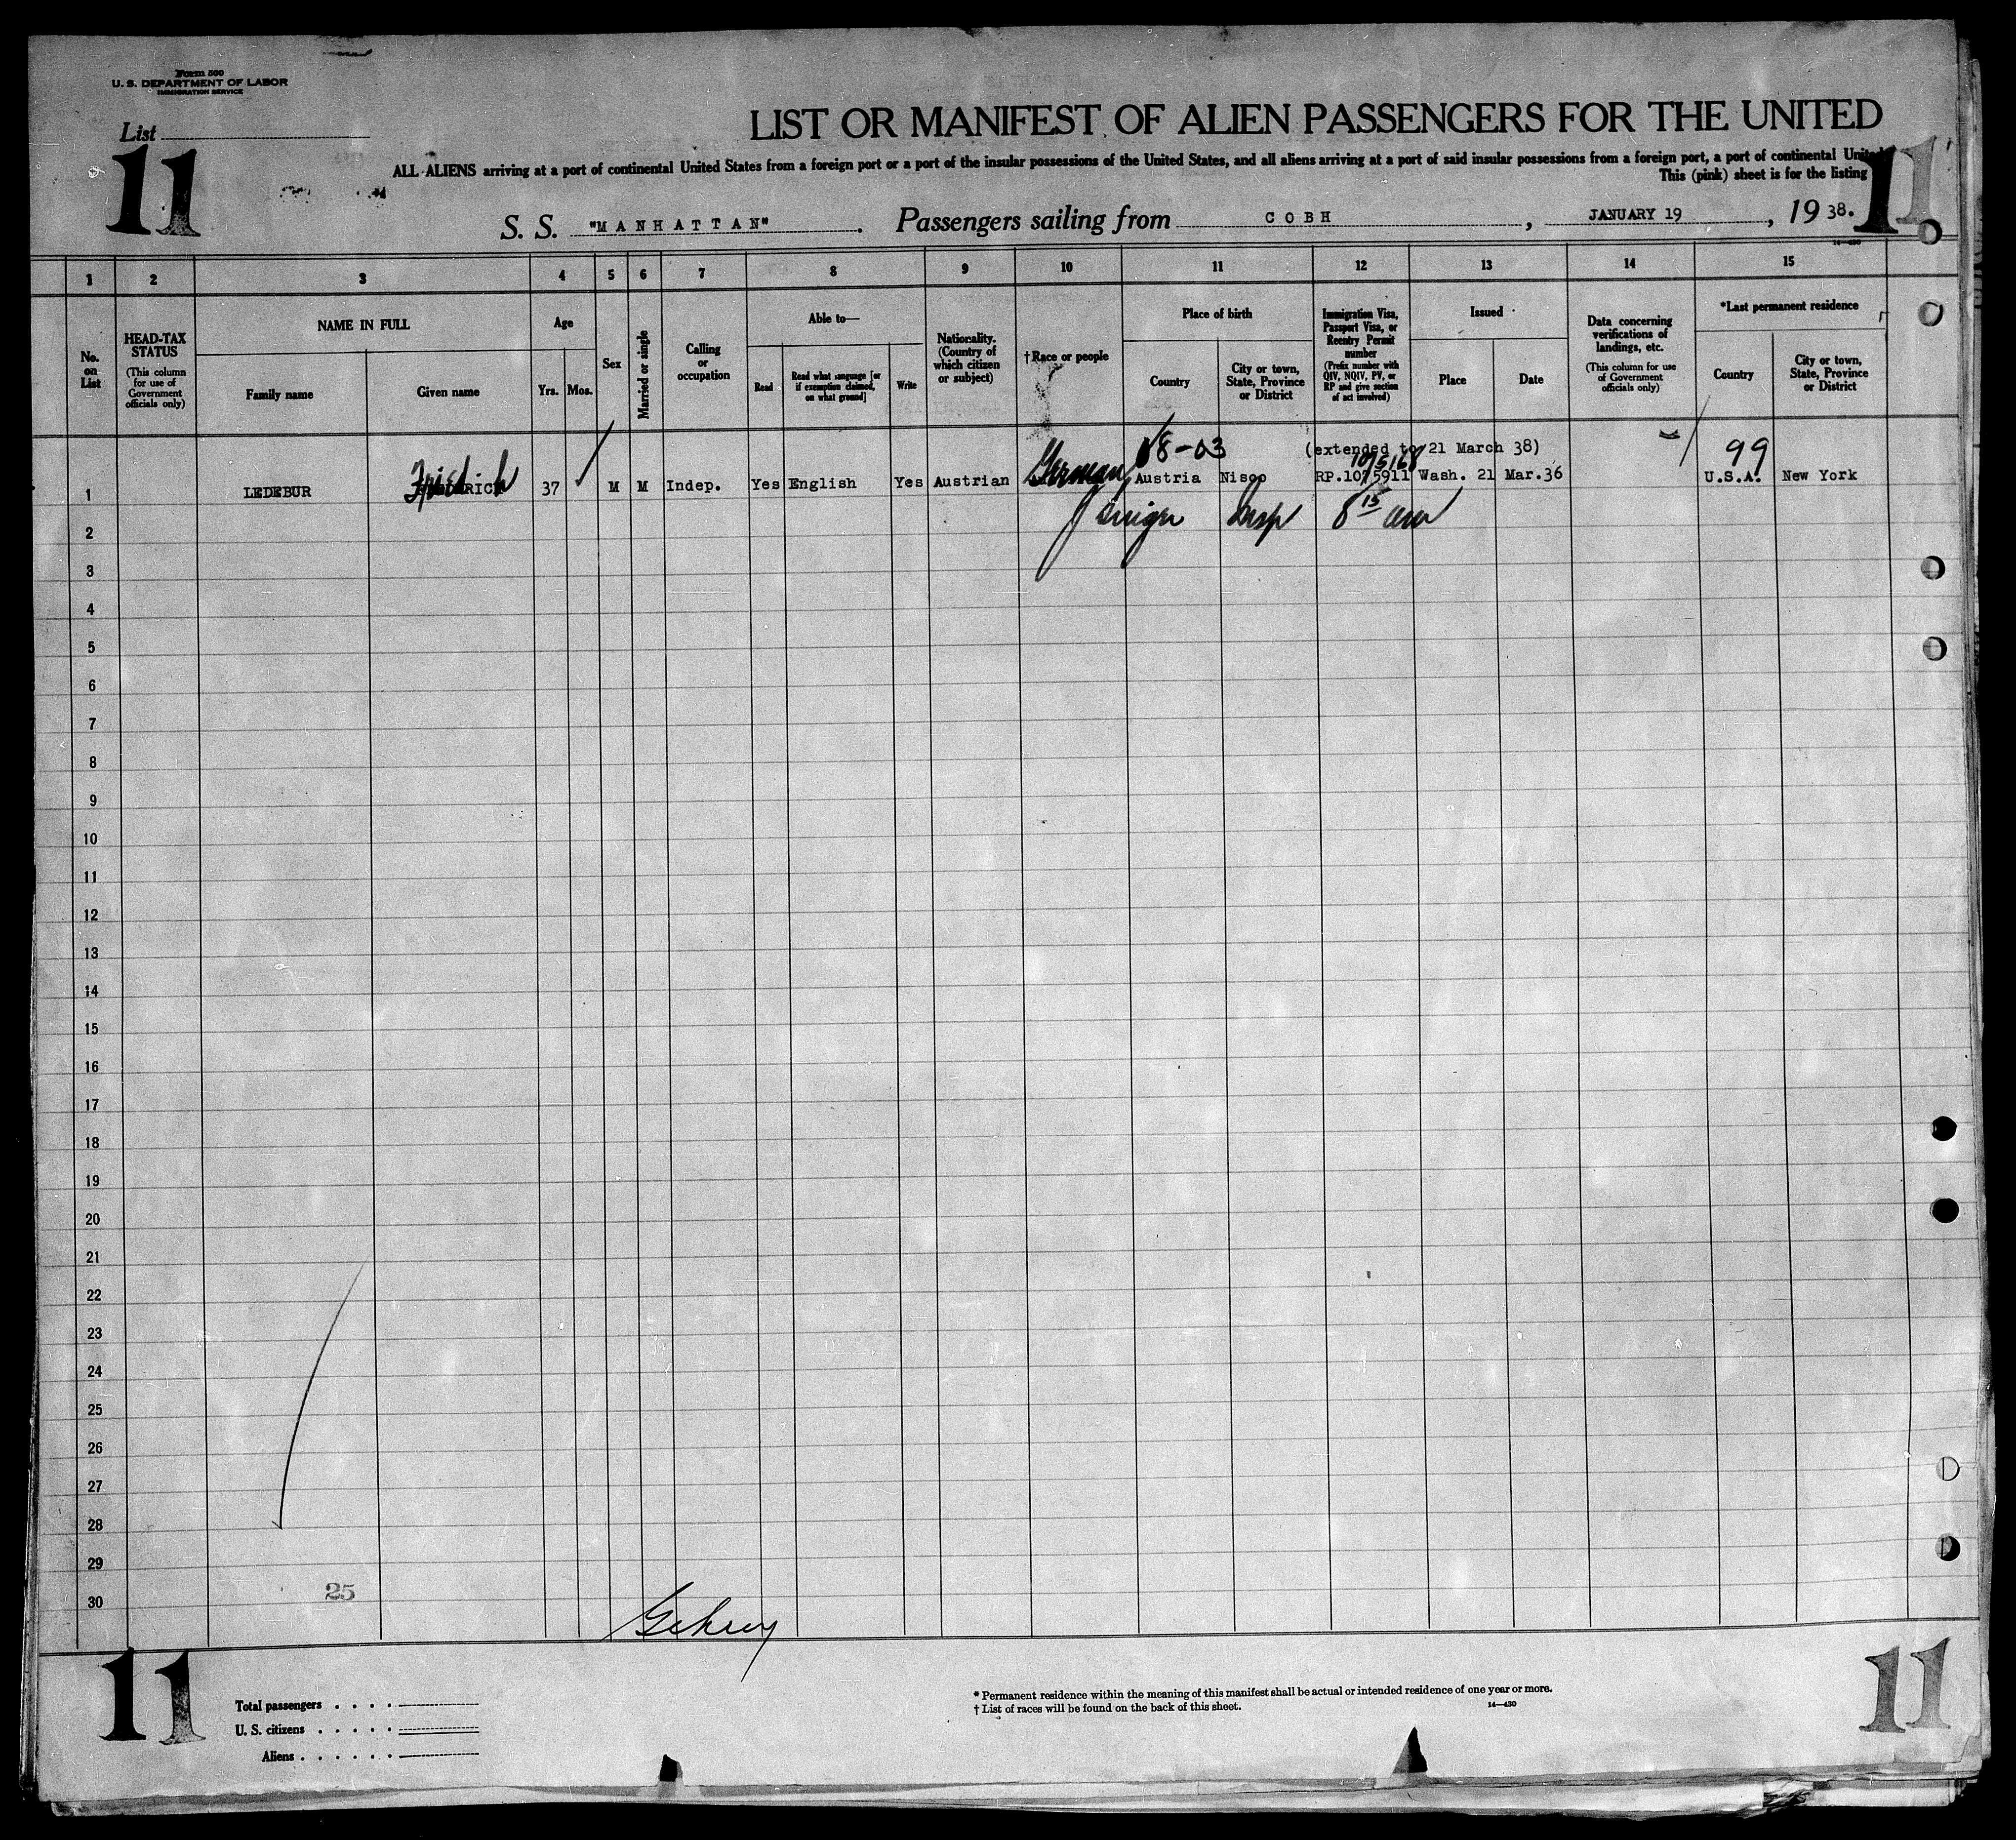 Form 500
U. S. DEPARTMENT OF LABOR
IMMIGRATION SERVICE
List
11
11
LIST OR MANIFEST OF ALIEN PASSENGERS FOR THE UNITED
ALL ALIENS arriving at a port of continental United States from a foreign port or a port of the insular possessions of the United States, and all aliens arriving at a port of said insular possessions from a foreign port, a port of continental
This (pink) sheet is for the listing
S. S. "MANHATTAN". Passengers sailing from COBH, JANUARY 19, 1938.
14—430
1 2 3 4 5 6 7 8 9 10 11 12 13 14 15
No. on List
HEAD-TAX STATUS
(This column for use of Government officials only)
NAME IN FULL
Family name
Given name
Age
Yrs. Mos.
Sex
Married or single
Calling or occupation
Able to—
Read
Read what language [or if exemption claimed, on what ground]
Write
Nationality. (Country of which citizen or subject)
†Race or people
Place of birth
Country
City or town, State, Province or District
Immigration Visa, Passport Visa, or Reentry Permit number
(Prefix number with QIV, NQIV, PV, or RP and give section of act involved)
Issued
Place
Date
Data concerning verifications of landings, etc.
(This column for use of Government officials only)
*Last permanent residence
Country
City or town, State, Province or District
8-03 (extended to 21 March 38) 99
1 LEDEBUR 37 M M Indep. Yes English Yes Austrian German Austria Nisco RP.1075911 Wash. 21 Mar.36 U.S.A. New York
2 Insp 8 15
3
4
5
6
7
8
9
10
11
12
13
14
15
16
17
18
19
20
21
22
23
24
25
26
27
28
29
25
30
11
11
Total passengers
U. S. citizens
Aliens
* Permanent residence within the meaning of this manifest shall be actual or intended residence of one year or more.
† List of races will be found on the back of this sheet. 14—430